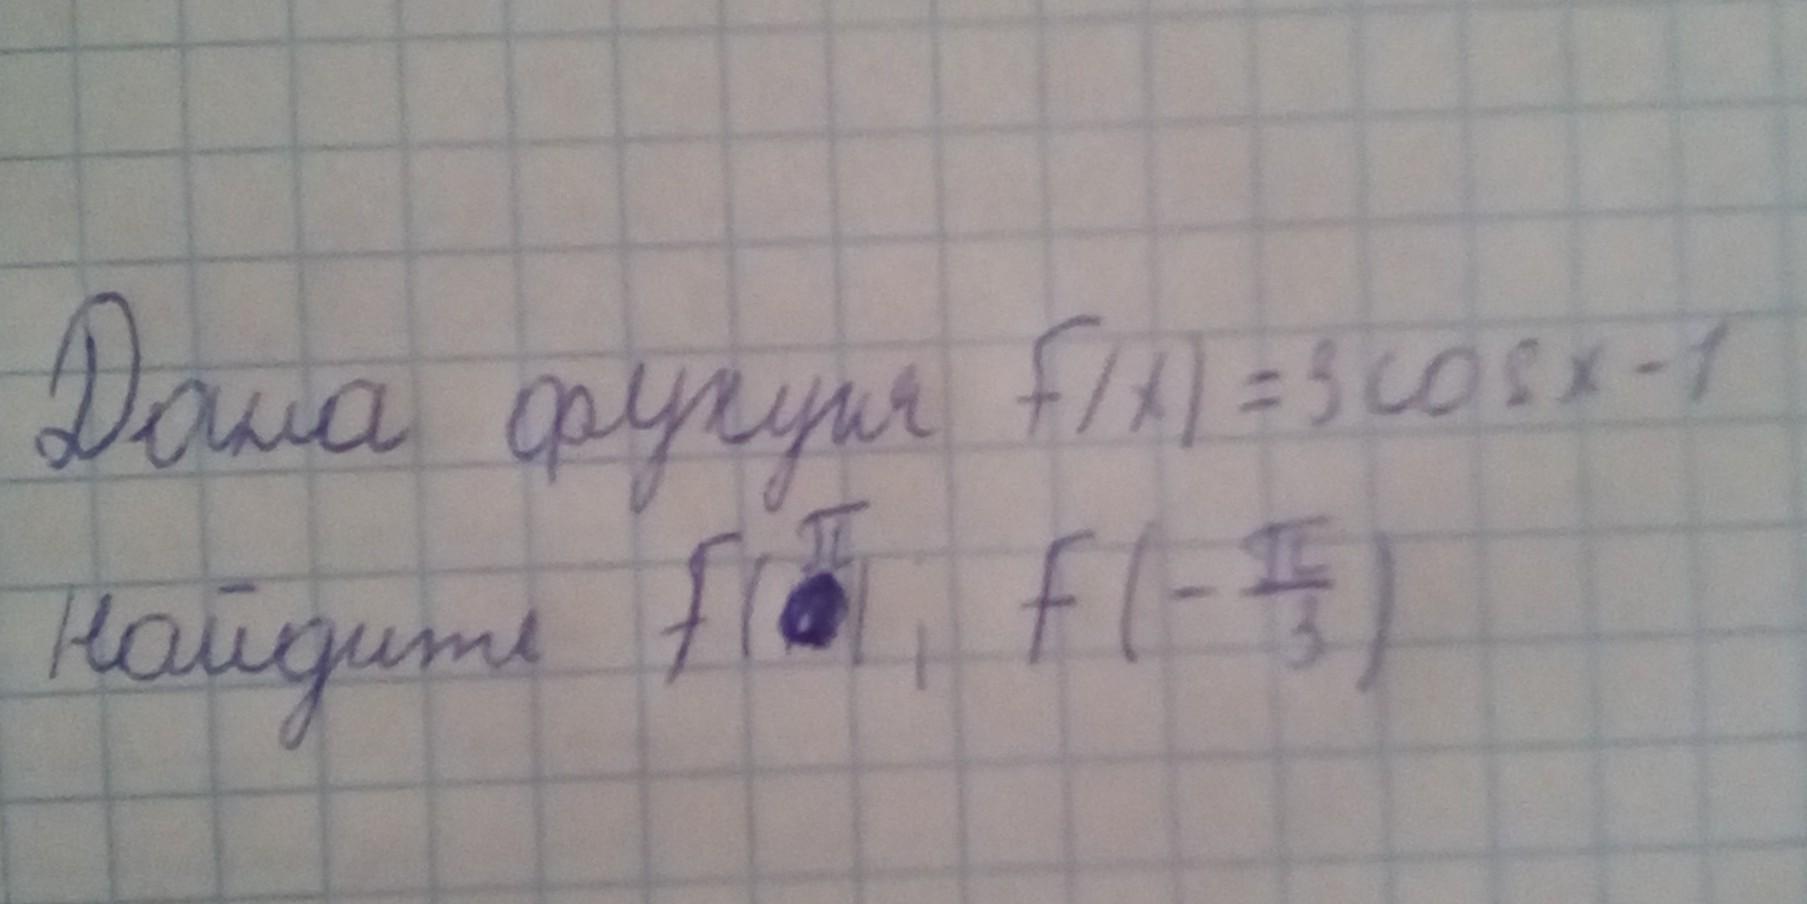 Дана функция f(x)=3cosx-1
Найдите f(π), f(-π/3)